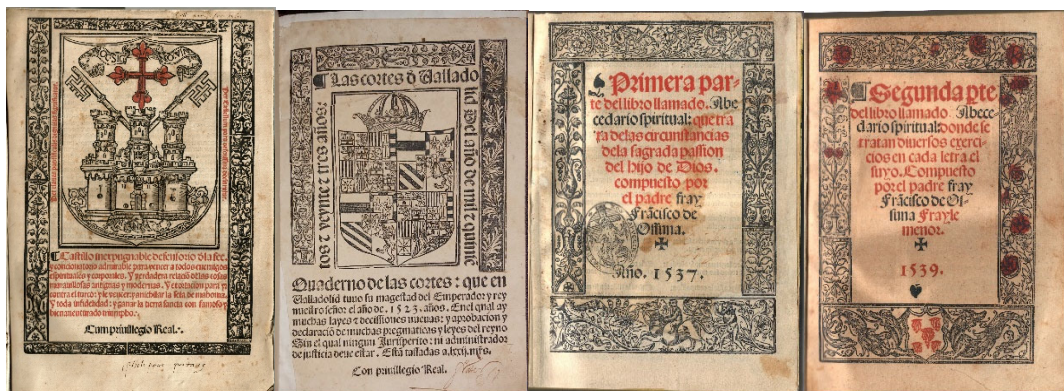 Castillo inexpugnable defensorio dla fee.
y concionatorio admirable para vencer a todos enemigos
espirituales y corporales. Y verdadera relaciõ delas cosas
marauillosas antiguas y modernas. Y exortacion para yr
contra el turco: y le vencer: y anichilar la seta de mahoma.
Y toda infidelidad: y ganar la tierra sancta con famoso y
bienauenturado triumpho.
Cum priuillegio Real.
Las cortes d Vallado
lid del año de mil z quinie
tos z veynte z tres años:
Quaderno de las cortes: que en
Valladolid tuuo su magestad del Emperador y rey
nuestro señor el año de. 1523. años. En el qual ay
muchas leyes z decisiones nueuas: y aprobacion y
declaracõ de muchas pregmaticas y leyes del reyno
Sin el qual ningun Jurisperito: ni administrador
de justicia deue estar. Está tassadas a.lxxij.mrs.
Con priuillegio Real.
Primera par-
te del libro llamado. Abe
cedario spiritual: que tra
ta delas circunstancias
dela sagrada passion
del hijo de Dios.
compuesto por
el padre fray
Frãcisco de
Ossuna.
Año. 1537.
Segunda pte
del libro llamado Abece-
dario spiritual: donde se
tratan diuersos exerci-
cios en cada letra el
suyo. Compuesto
por el padre fray
Frãcisco de Os-
suna Frayle
menor.
1539.